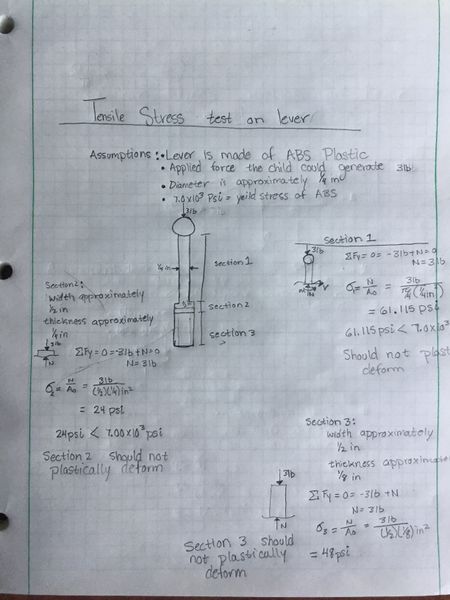 Tensile Stress test on lever
Assumptions: • Lever is made of ABS Plastic
• Applied force the child could generate 3lb
• Diameter is approximately 1/4 in
• 7.0x10³ Psi = yeild stress of ABS
3lb
1/4 in
section 1
section 2
section 3
Section 1
3lb
ΣFy = 0 = -3lb + N = 0
N = 3lb
σ = N/A₀ = 3lb / π/4 (1/4in)
= 61.115 psi
61.115 psi < 7.0x10
Should not plast
deform
Section 2:
width approximately
1/2 in
thickness approximately
1/4 in
3lb
N
ΣFy = 0 = -3lb + N = 0
N = 3lb
σ₂ = N/A₀ = 3lb / (1/2)(1/4) in²
= 24 psi
24psi < 7.00x10³ psi
Section 2 should not
plastically deform
Section 3:
width approximately
1/2 in
thickness approximate
1/8 in
3lb
N
ΣFy = 0 = -3lb + N
N = 3lb
σ₃ = N/A₀ = 3lb / (1/2)(1/8) in²
= 48psi
Section 3 should
not plastically
deform